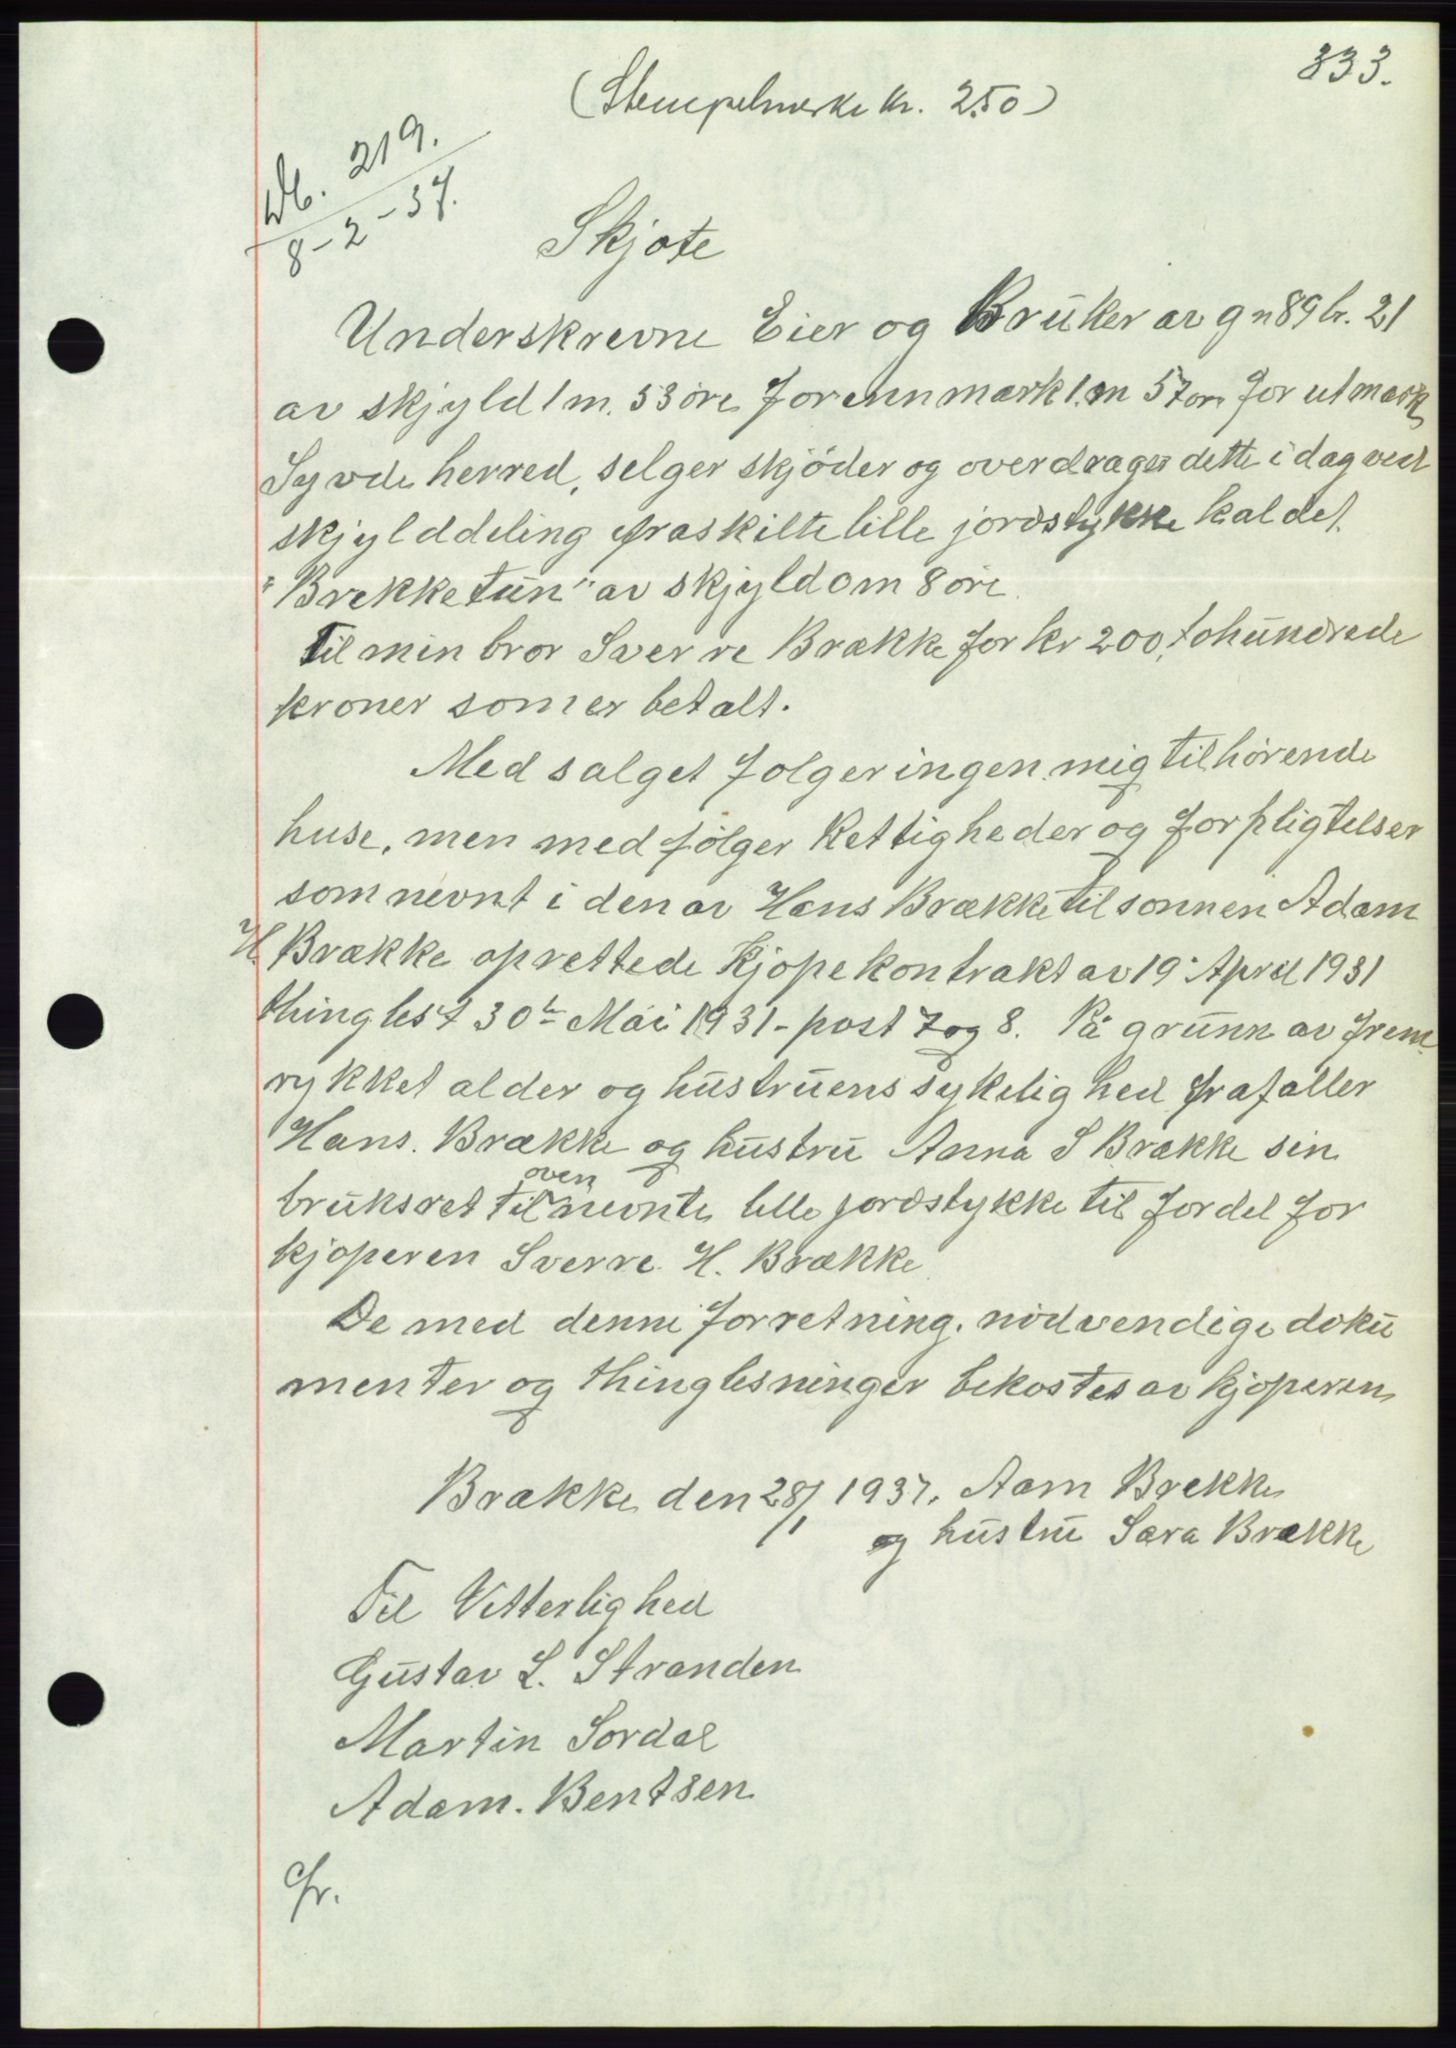 333.
(Stempelmerke kr. 2.50)
Db. 219.
8-2-37.
Skjøte
Underskrevne Eier og Bruker av gn 89 br. 21
av skjyld 1 m. 53 øre for ennmark 1. m 57 øre for utmark
Syvde herred, selger skjøder og overdrager dette i dag ved
skjylddeling fraskilte lille jordstykke kaldet
"Brekketun" av skjyld om 8 øre.
Til min bror Sverre Brække for kr 200, tohundrede
kroner som er betalt.
Med salget følger ingen mig tilhørende
huse, men med følger Rettigheder og forpligtelser
som nevnt i den av Hans Brække til sønnen Adam
H. Brække oprettede Kjøpekontrakt av 19 April 1931
thinglest 30te Mai 1931 - post 7 og 8. På grunn av frem-
rykket alder og hustruens sykelighed frafaller
Hans. Brække og hustru Anna S Brække sin
oven
bruksret til nevnte lille jordstykke til fordel for
kjøperen Sverre H. Brække
De med denne forretning. nødvendige doku
menter og thinglesninger bekostes av kjøperen
Brække den 28/1 1937. Aam Brekke
og hustru Sara Brække
Til Vitterlighed
Gustav L. Stranden
Martin Sordal
Adam. Bentsen